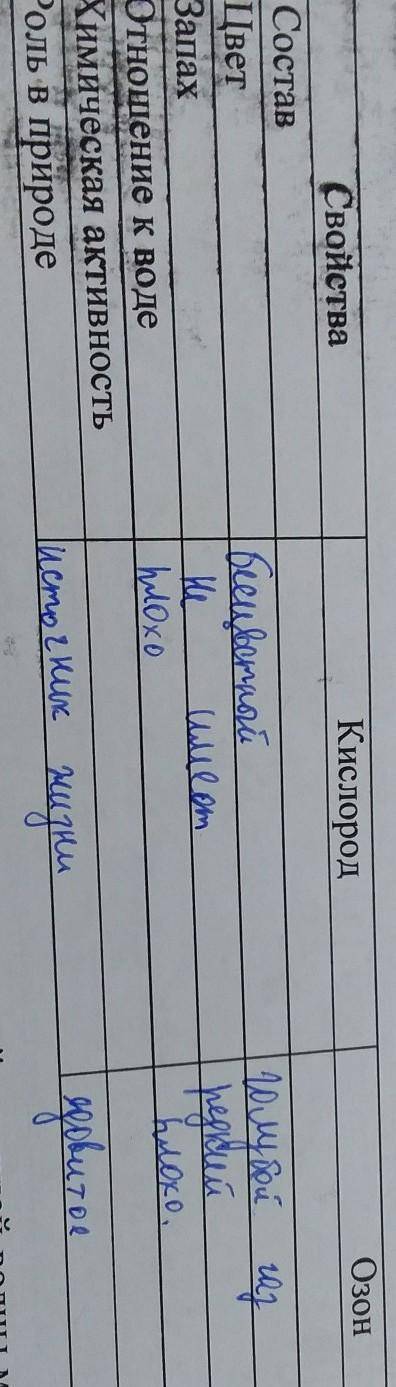 Свойства Кислород Озон
Состав
Цвет бесцветной голубой газ
Запах не имеет редкий
Отношение к воде плохо плохо.
Химическая активность
Роль в природе источник жизни ядовитое